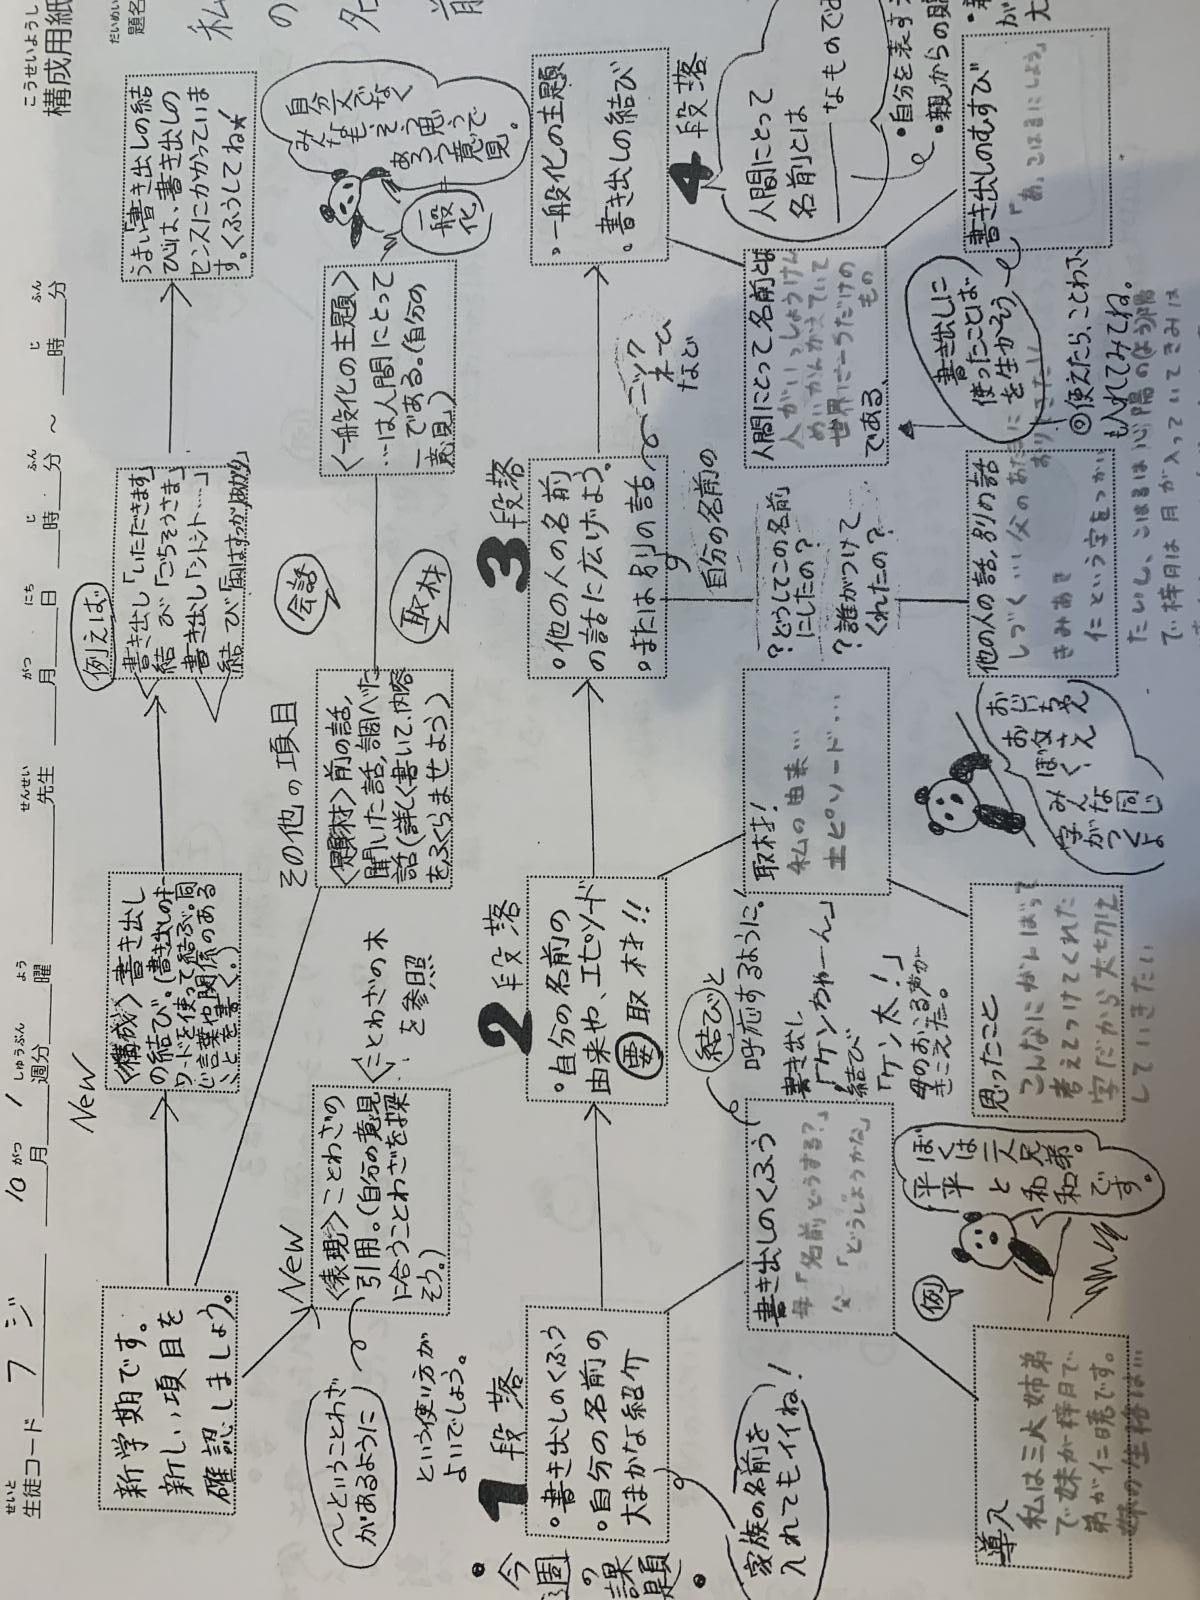 こうせいようし
構成用紙
だいめい
題名
私
の
名
前
せいと
生徒コード フジ 10 がつ月 1 しゅうぶん週分 よう曜 せんせい先生 がつ月 にち日 じ時 ふん分 ～ じ時 ふん分
新学期です。
新しい項目を
確認しましょう。
New
〈構成〉書き出し
の結び。(書き出しのキー
ワードを使って結ぶ。同
じ言葉や関係のある
ことを書く。)
例えば
書き出し「いただきます」
結び「ごちそうさま」
書き出し「シトシト…」
結び「雨はすっかりあがり」
うまい「書き出しの結
び」は、書き出しの
センスにかかっていま
す。くふうしてね★
New
〈表現〉ことわざの
引用。(自分の意見
に合うことわざを探
そう。)
〈ことわざの木
を参照
～ということわざ
があるように
という使い方が
よいでしょう。
その他の項目
〈題材〉前の話、
聞いた話、調べた
話(詳しく書いて、内容
をふくらませよう)
会話
取材
〈一般化の主題〉
…は人間にとって
―である。(自分の
意見)
一般化
=
自分文でなく
みんなも、そう思う
であろう意見で
。
・今週の課題・
1段落
・書き出しのくふう
・自分の名前の
大まかな紹介
家族の名前を
入れてもイイね！
2段落
・自分の名前の
由来や、エピソード
要取材!!
3段落
・他の人の名前
の話に広げよう。
・または別の話
ニックネームなど
自分の名前の
4段落
・一般化の主題
・書き出しの結び
人間にとって
名前とは
――なものである
・自分を表す
・親からの
書き出しのくふう
母「名前どうする？」
父「どうしようかな」
結びと
呼応するように。
書き出し
「ケンちゃーん」
結び
「ケン太！」
母のおこる声が
きこえた。
取材！
私の由来…
エピソード…
？どうしてこの名前
にしたの？
？誰がつけて
くれたの？
人間にとって名前とは
人がいっしょうけん
めいかんがえていて
世界に一つだけの
もの
である。
導入
私は三人姉弟
で妹が梓月で
弟が仁暁です。
例
ぼくは二人兄弟。
平と和
平和です。
思ったこと
こんなにがんばって
考えてつけてくれた
字だから大切に
していきたい
おじいちゃん
お父さん
ぼく、
みんな同じ
字がつくよ
他の人の話,別の話
という字をつかい
書き出しに
使ったことば
を生かそう
◎使えたら、ことわざ
も入れてみてね。
書き出しのむすび
「あ、こはるにしよう」